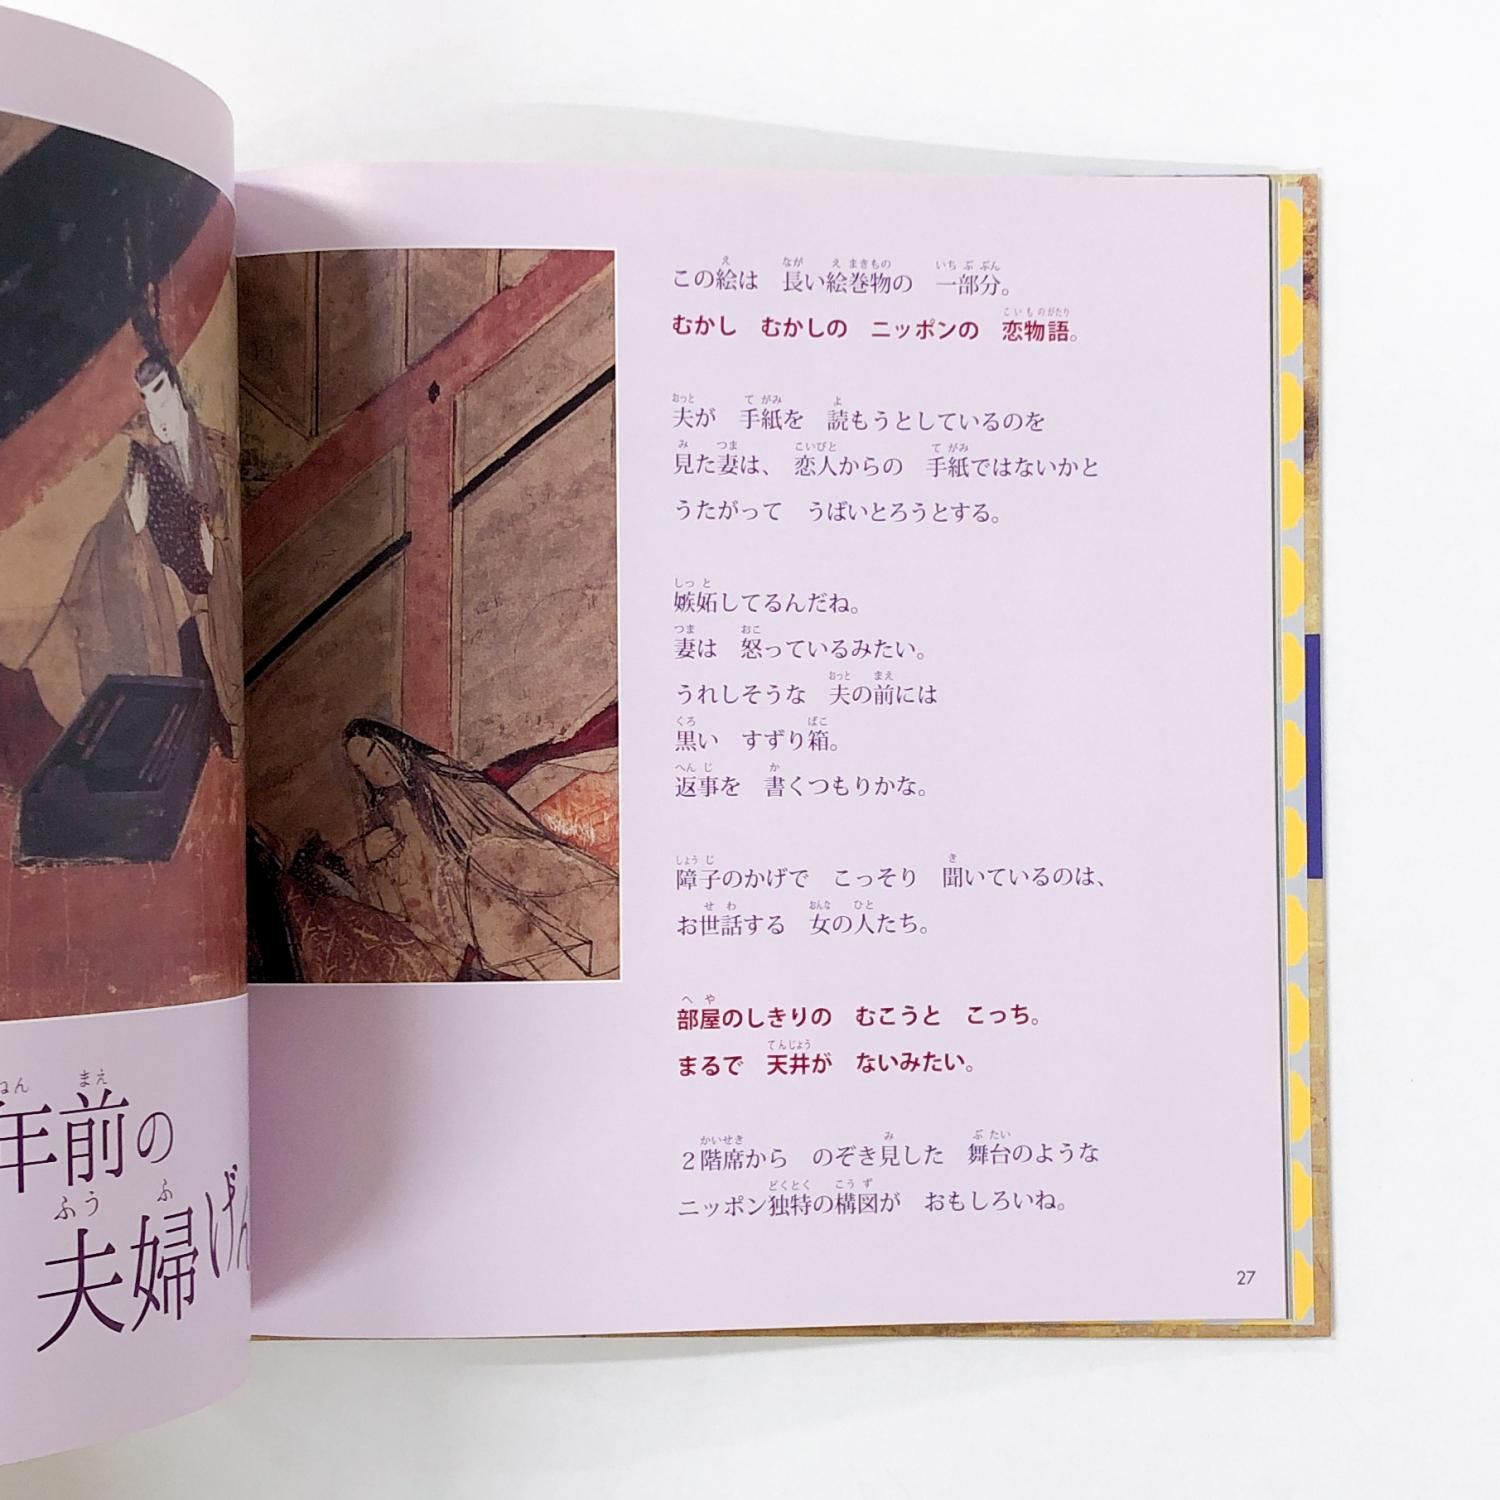 年前の
夫婦げん
この絵は　長い絵巻物の　一部分。
むかし　むかしの　ニッポンの　恋物語。
夫が　手紙を　読もうとしているのを
見た妻は、恋人からの　手紙ではないかと
うたがって　うばいとろうとする。
嫉妬してるんだね。
妻は　怒っているみたい。
うれしそうな　夫の前には
黒い　すずり箱。
返事を　書くつもりかな。
障子のかげで　こっそり　聞いているのは、
お世話する　女の人たち。
部屋のしきりの　むこうと　こっち。
まるで　天井が　ないみたい。
２階席から　のぞき見した　舞台のような
ニッポン独特の構図が　おもしろいね。
27